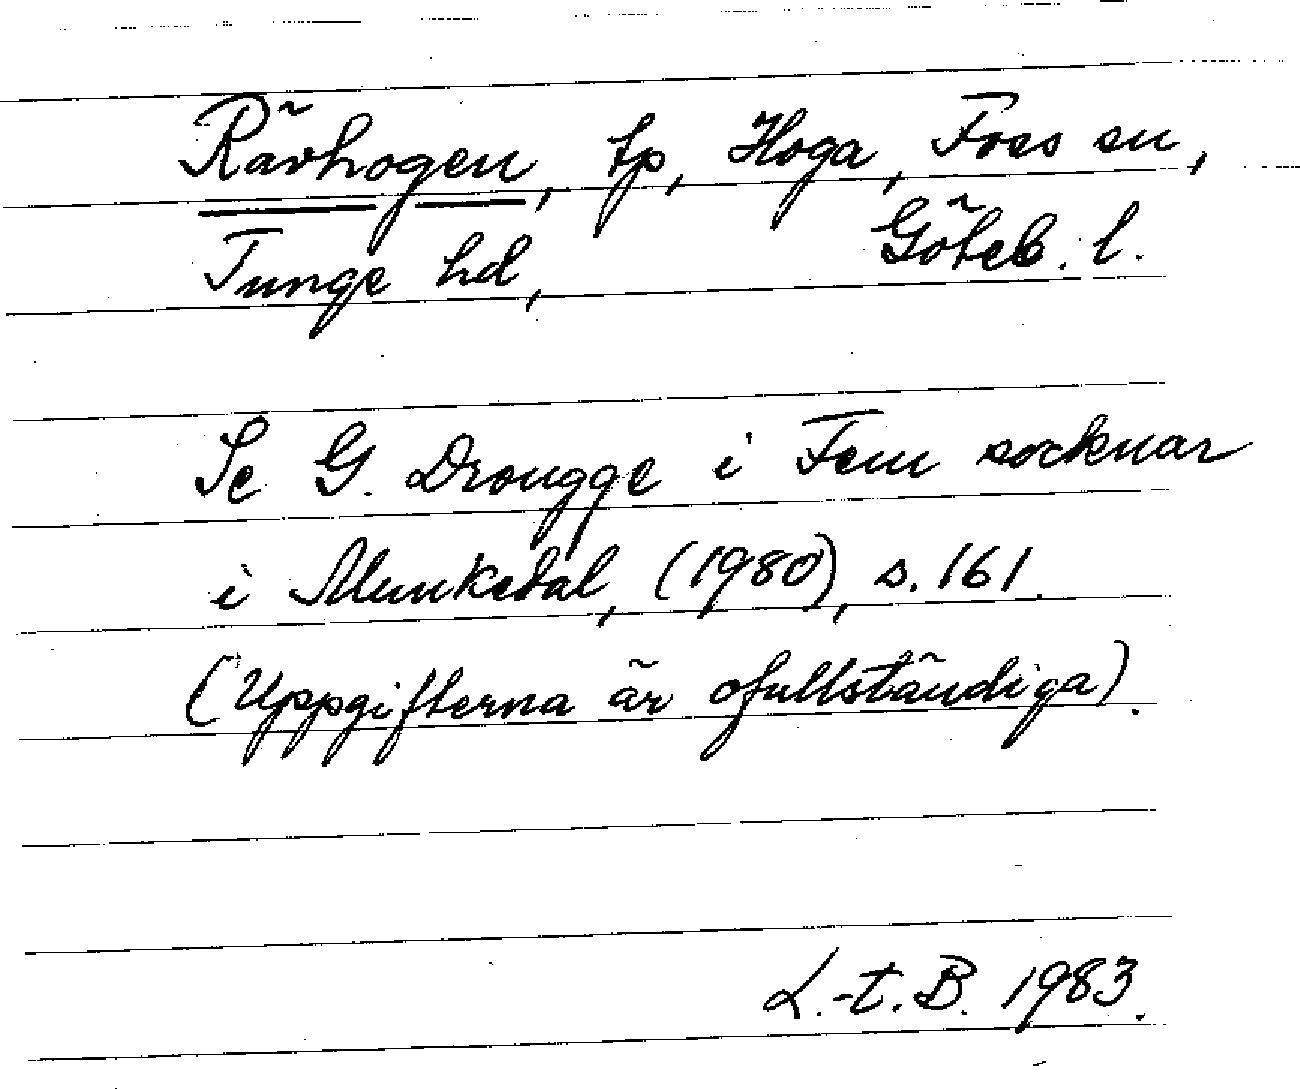 Rävhogen, tp, Hoga, Foss sn,
Tunge hd, Göteb. l.
Se G. Drougge i Fem socknar
i Munkedal, (1980), s. 161.
(Uppgifterna är ofullständiga).
L.-t. B. 1983.